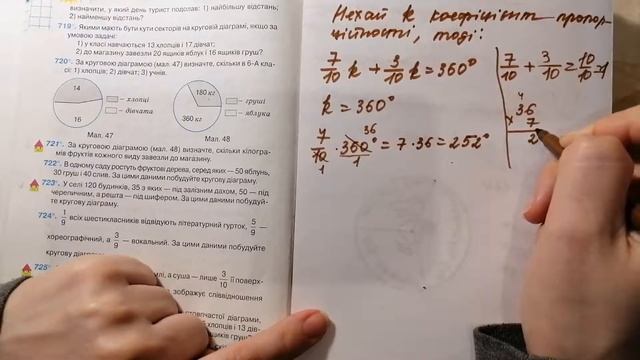 визначити, у який день турист подолав: 1) найбільшу відстань;
2) найменшу відстань?
719. Якими мають бути кути секторів на круговій діаграмі, якщо за
умовою задачі:
1) у класі навчаються 13 хлопців і 17 дівчат;
2) до магазину завезли 20 ящиків яблук і 16 ящиків груш?
720. За круговою діаграмою (мал. 47) визначте, скільки в 6-А кла-
сі: 1) хлопців; 2) дівчат; 3) учнів.
14
16
– хлопці
– дівчата
180 кг
360 кг
– груші
– яблука
Мал. 47
Мал. 48
721. За круговою діаграмою (мал. 48) визначте, скільки кілогра-
мів фруктів кожного виду завезли до магазину.
722. В одному саду ростуть фруктові дерева, серед яких — 50 яблунь,
30 груш і 40 слив. За цими даними побудуйте кругову діаграму.
723. У селі 120 будинків, 35 з яких — під залізним дахом, 50 — під
черепичним, а решта — під шифером. За цими даними побудуй-
те кругову діаграму.
724. 1/9 всіх шестикласників відвідують літературний гурток, 5/9 —
хореографічний, а 3/9 — вокальний. За цими даними побудуйте
кругову діаграму.
725.
а суша — лише 3/10 її поверх-
зображує співвідношення
стовпчасті діаграми,
хлопців і 13 дів-
ящиків груш?
Нехай k коефіцієнт пропор-
ційності, тоді:
7/10 k + 3/10 k = 360°
k = 360°
7/10 · 360°/1 = 7 · 36 = 252°
36
1
7/10 + 3/10 = 10/10 = 1
4
36
× 7
2